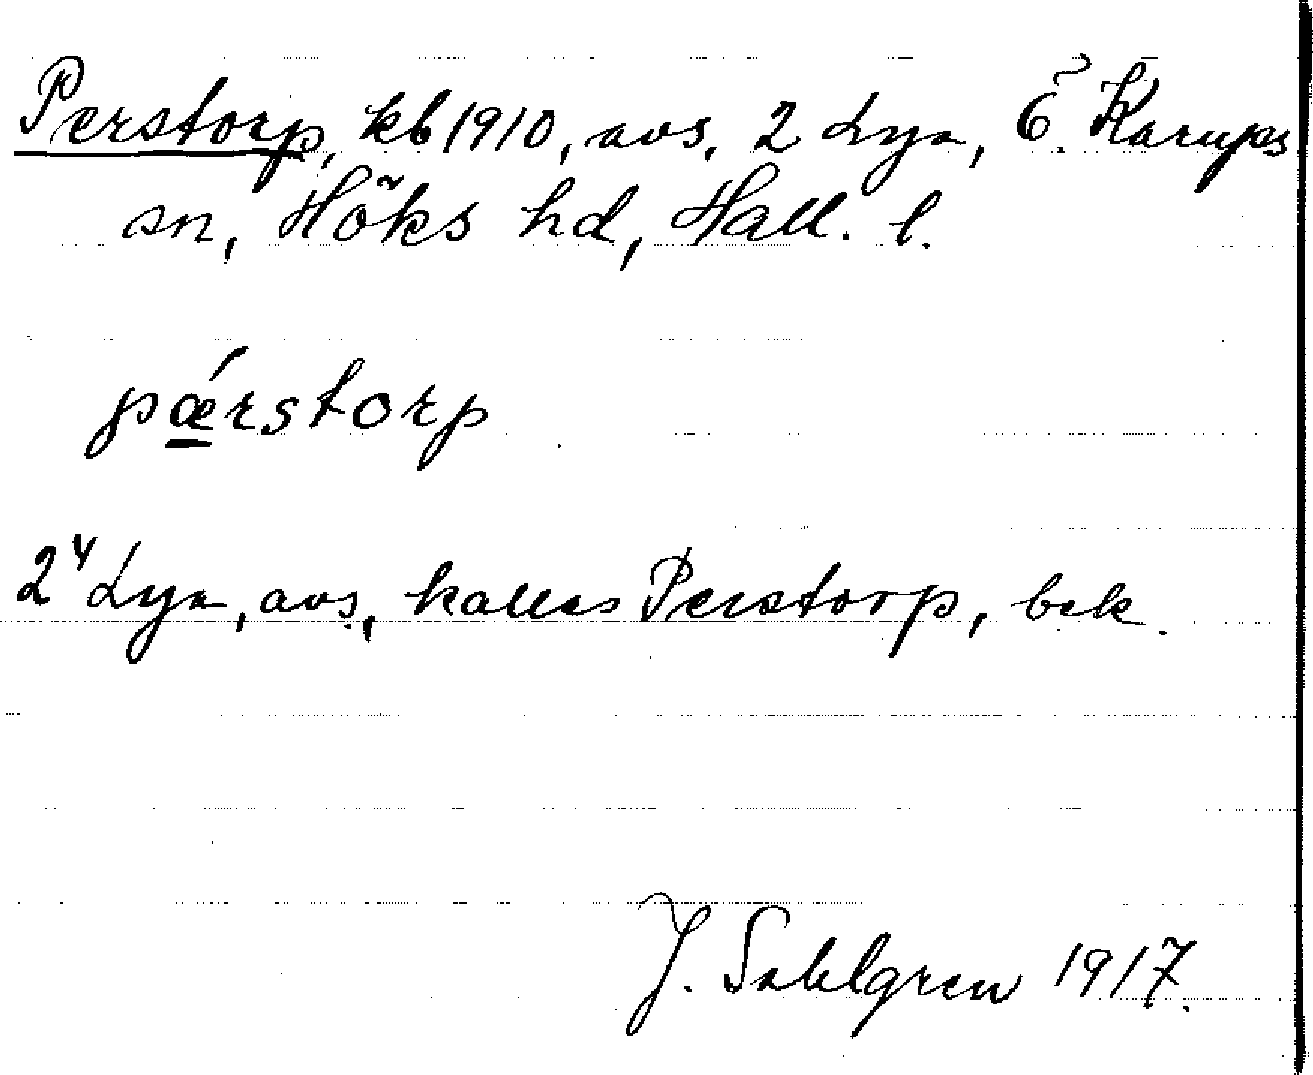 Perstorp, kb 1910, avs. 2 Lya, Ö. Karups
sn, Höks hd, Hall. l.
pǽrstorp
2⁴ Lya, avs, kallas Perstorp, bek.
J. Sahlgren 1917.